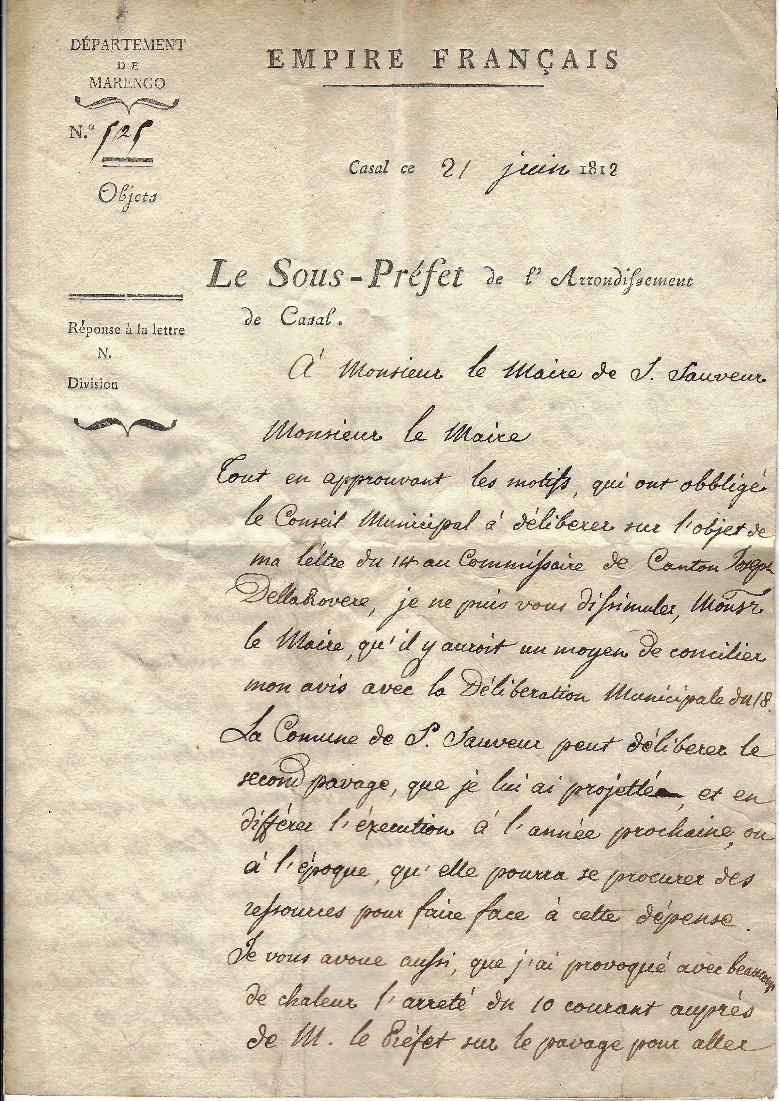 DÉPARTEMENT
DE
MARENGO
N.º 525
Objets
Réponse à la lettre
N.
Division
EMPIRE FRANÇAIS
Casal ce 21 juin 1812
Le Sous-Préfet de l'Arrondissement
de Casal.
À Monsieur le Maire de S. Sauveur
Monsieur le Maire
Tout en approuvant les motifs, qui ont obbligé
le Conseil Municipal à déliberer sur l'objet de
ma léttre du 14 au Commissaire de Canton
DellaRovere, je ne puis vous dissimuler, Monsr
le Maire, qu'il y auroit un moyen de concilier
mon avis avec la Déliberation Municipale du 18.
La Comune de S. Sauveur peut déliberer le
second pavage, que je lui ai projetté, et en
différer l'éxecution à l'année prochaine, ou
à l'époque, qu'elle pourra se procurer des
ressources pour faire face à cette dépense.
Je vous avoue aussi, que j'ai provoqué avec beaucoup
de chaleur l'arreté du 10 courant auprés
de M. le Préfet sur le pavage pour aller